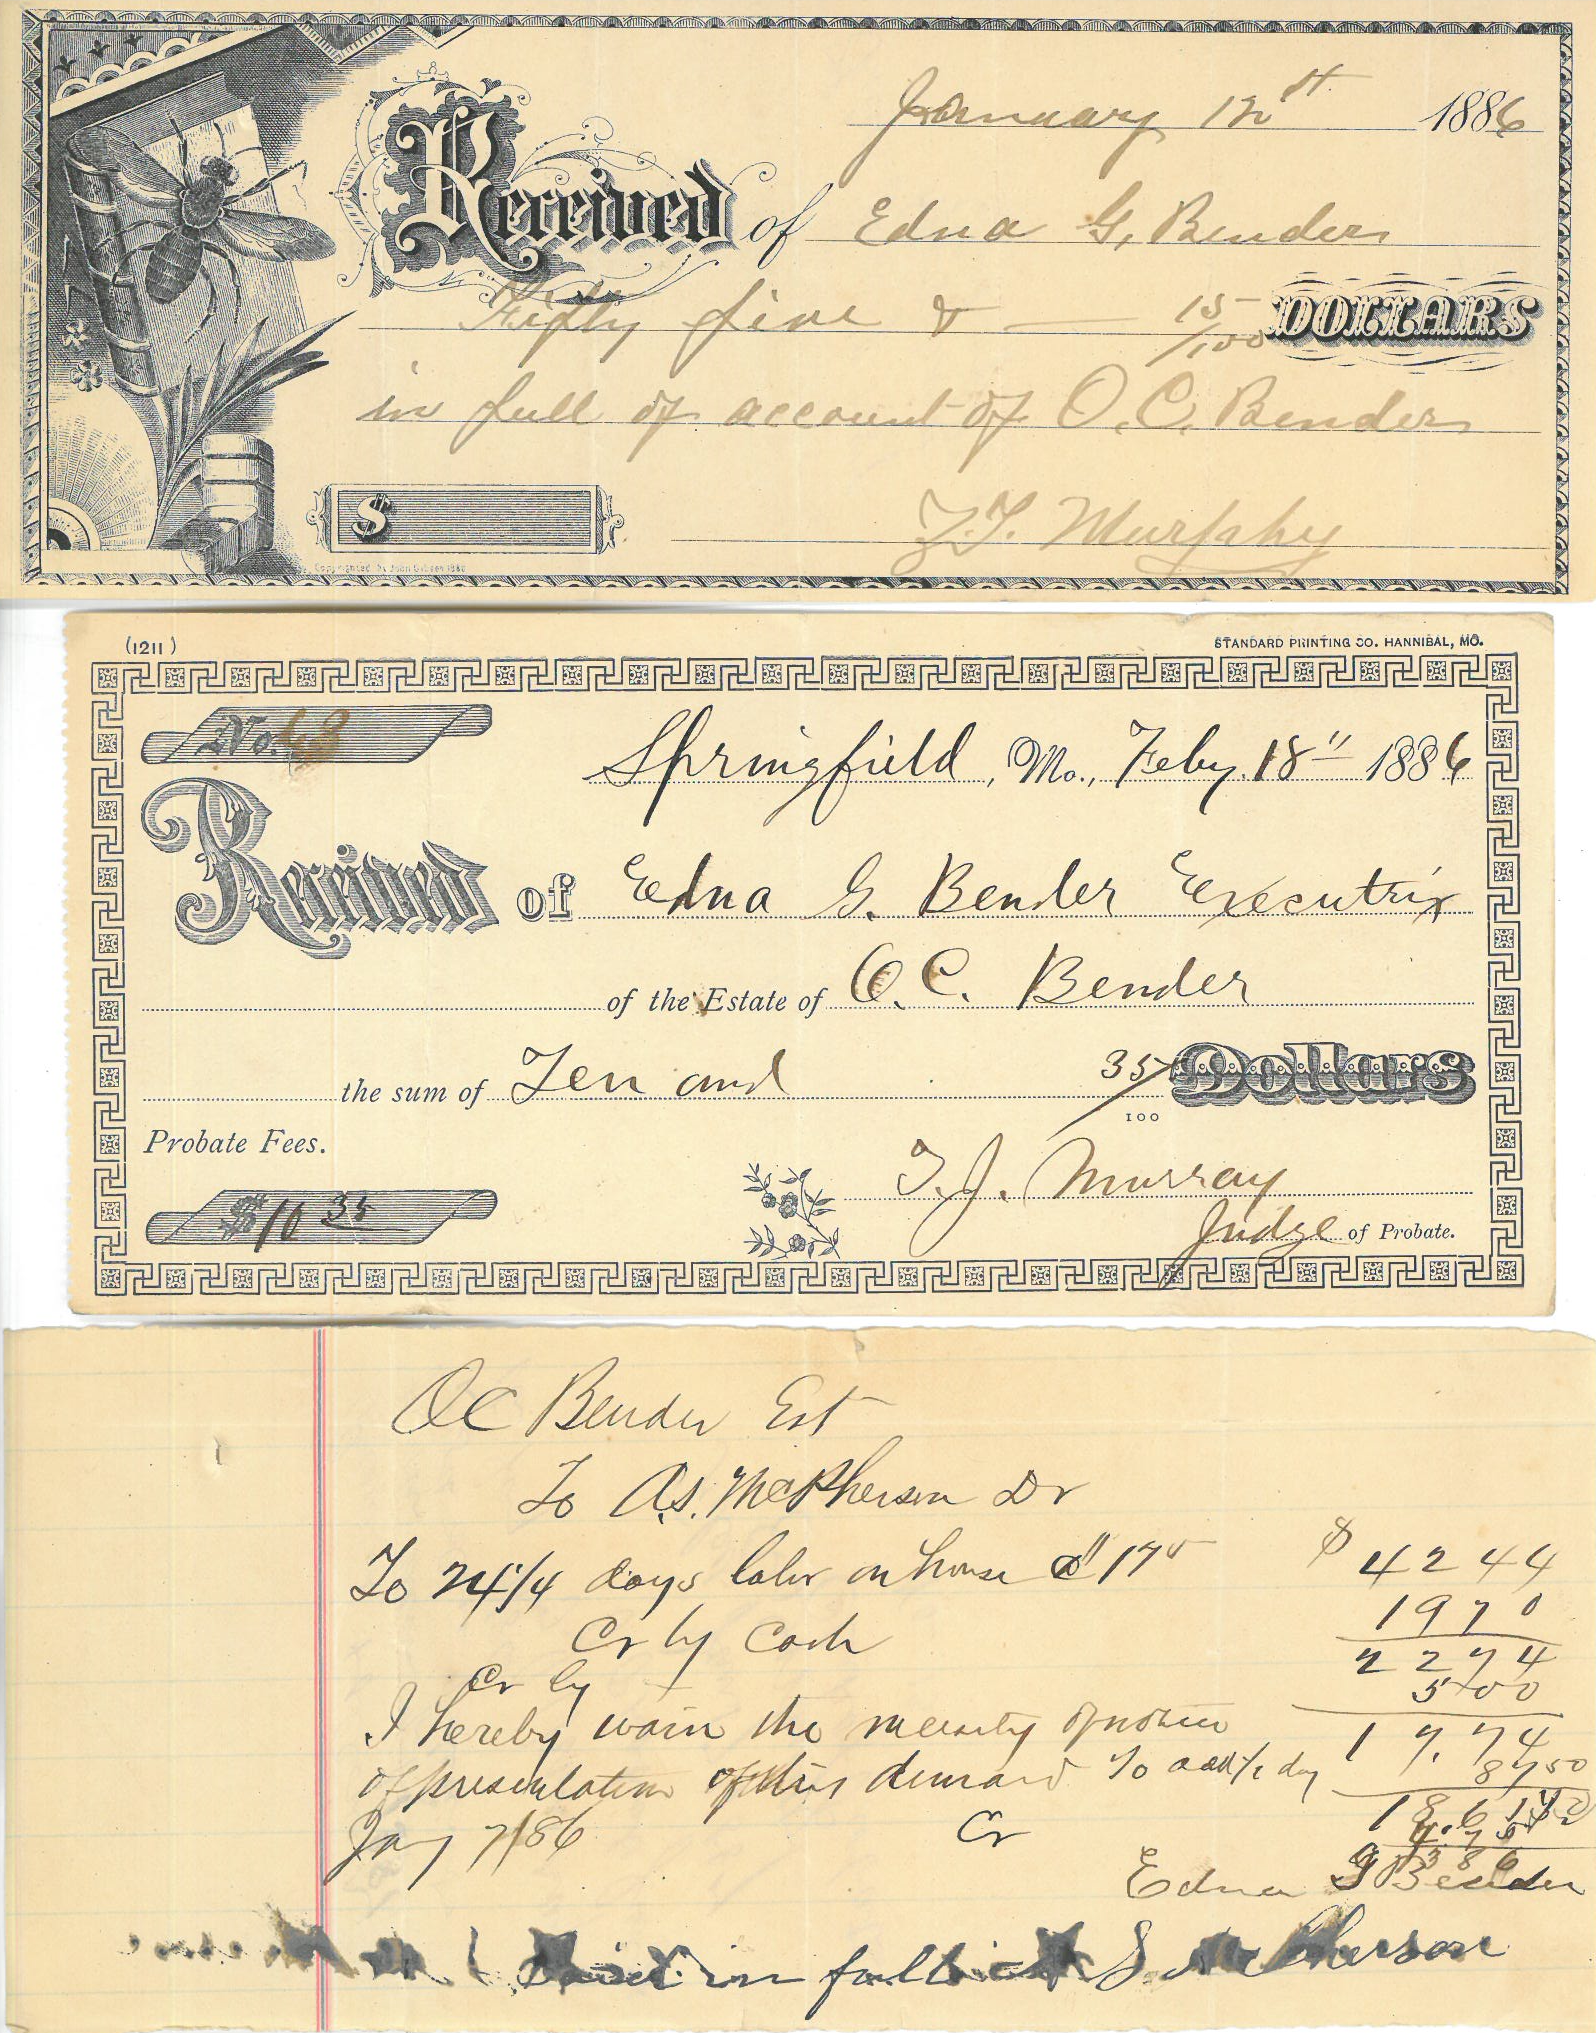 January 12st 1886
Received of Edna G. Bender
Fifty five & — 15/100 DOLLARS
in full of account of O. C. Bender
$
Murphy
Copyrighted by John Gibson 1880
(1211)
STANDARD PRINTING CO. HANNIBAL, MO.
No.
Springfield, Mo., Feby. 18" 1886
Received of Edna G. Bender Executrix
of the Estate of O. C. Bender
the sum of Ten and 35/100 Dollars
Probate Fees.
$10 35
T. J. Murray
Judge of Probate.
OC Bender Est
To A.S. McPherson Dr
To 24 1/4 days labor on house @ 175 $ 42 44
Cr by Cash 19 70
22 74
Cr by 5 00
I hereby waive the necessity of notice 17.74
of presentation of this demand To add 1/2 day 87 50
Jany 7/86 Cr
Edna G Bender
in full